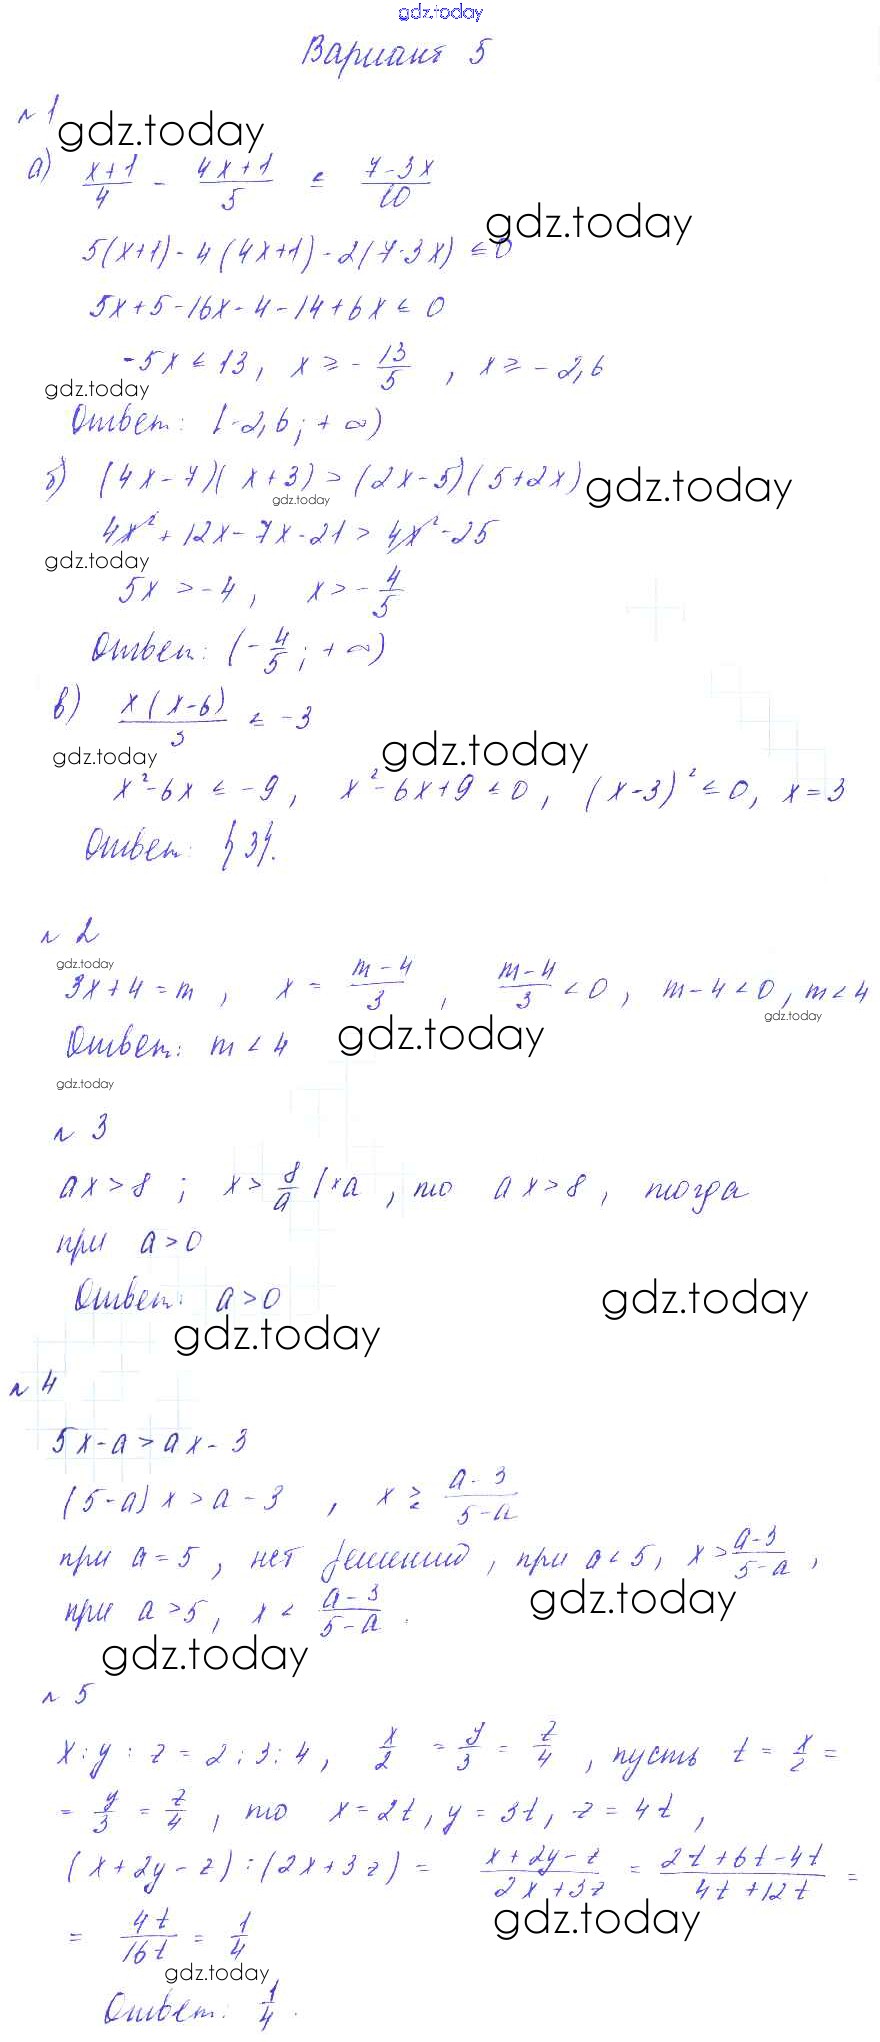 gdz.today
Вариант 5
№ 1
gdz.today
а) (x+1)/4 - (4x+1)/5 ≤ (7-3x)/10
gdz.today
5(x+1) - 4(4x+1) - 2(7-3x) ≤ 0
5x+5-16x-4-14+6x ≤ 0
-5x ≤ 13, x ≥ -13/5, x ≥ -2,6
gdz.today
Ответ: [-2,6; +∞)
б) (4x-7)(x+3) > (2x-5)(5+2x)
gdz.today
gdz.today
4x² + 12x - 7x - 21 > 4x² - 25
gdz.today
5x > -4, x > -4/5
Ответ: (-4/5; +∞)
в) x(x-6)/3 ≤ -3
gdz.today
gdz.today
x² - 6x ≤ -9, x² - 6x + 9 ≤ 0, (x-3)² ≤ 0, x = 3
Ответ: {3}.
№ 2
gdz.today
3x+4 = m, x = (m-4)/3, (m-4)/3 < 0, m-4 < 0, m < 4
gdz.today
Ответ: m < 4
gdz.today
gdz.today
№ 3
ax > 8; x > 8/a |×a, то ax > 8, тогда
при a > 0
Ответ: a > 0
gdz.today
gdz.today
№ 4
5x - a > ax - 3
(5-a)x > a-3, x ≷ (a-3)/(5-a)
при a = 5, нет решений, при a < 5, x > (a-3)/(5-a),
при a > 5, x < (a-3)/(5-a).
gdz.today
gdz.today
№ 5
x : y : z = 2 : 3 : 4, x/2 = y/3 = z/4, пусть t = x/2 =
= y/3 = z/4, то x = 2t, y = 3t, z = 4t,
(x+2y-z) : (2x+3z) = (x+2y-z)/(2x+3z) = (2t+6t-4t)/(4t+12t) =
gdz.today
= 4t/16t = 1/4
gdz.today
Ответ: 1/4.